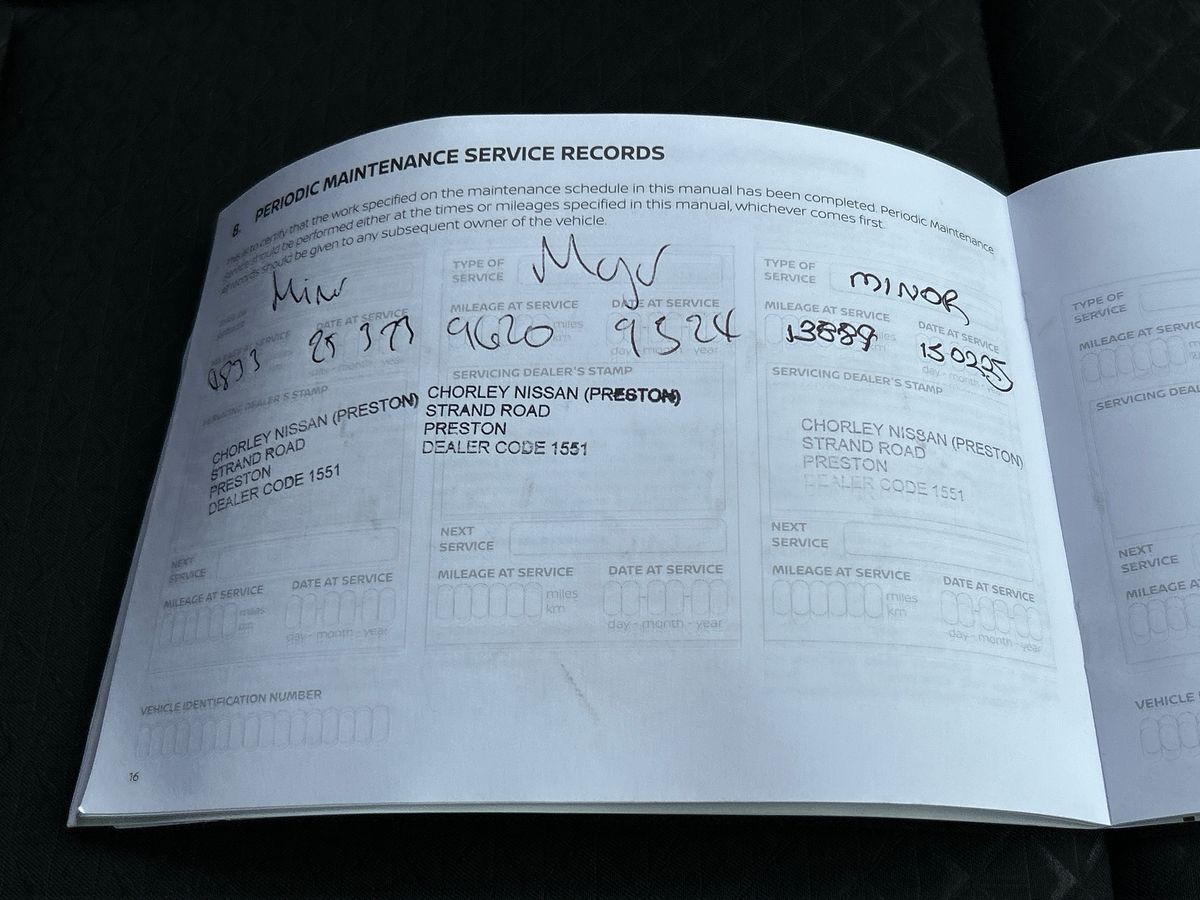 8. PERIODIC MAINTENANCE SERVICE RECORDS
This is to certify that the work specified on the maintenance schedule in this manual has been completed. Periodic Maintenance
service should be performed either at the times or mileages specified in this manual, whichever comes first.
all records should be given to any subsequent owner of the vehicle.
Minor
MILEAGE AT SERVICE
DATE AT SERVICE
day - month - year
SERVICING DEALER'S STAMP
CHORLEY NISSAN (PRESTON)
STRAND ROAD
PRESTON
DEALER CODE 1551
NEXT
SERVICE
MILEAGE AT SERVICE
DATE AT SERVICE
miles
km
day - month - year
VEHICLE IDENTIFICATION NUMBER
16
TYPE OF
SERVICE
Major
MILEAGE AT SERVICE
DATE AT SERVICE
9620
miles
km
9 5 24
day - month - year
SERVICING DEALER'S STAMP
CHORLEY NISSAN (PRESTON)
STRAND ROAD
PRESTON
DEALER CODE 1551
NEXT
SERVICE
MILEAGE AT SERVICE
DATE AT SERVICE
miles
km
day - month - year
TYPE OF
SERVICE
MINOR
MILEAGE AT SERVICE
DATE AT SERVICE
13889
150225
day - month - year
SERVICING DEALER'S STAMP
CHORLEY NISSAN (PRESTON)
STRAND ROAD
PRESTON
DEALER CODE 1551
NEXT
SERVICE
MILEAGE AT SERVICE
DATE AT SERVICE
miles
km
day - month - year
TYPE OF
SERVICE
MILEAGE AT SERVIC
SERVICING DEALER
NEXT
SERVICE
MILEAGE A
VEHICLE